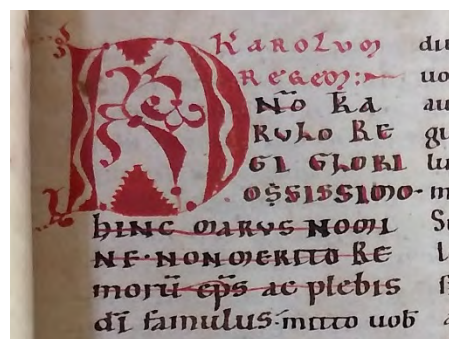 KAROLVM
REGEM:~
DN̄O KA
RVLO RE
GI GLORI
OSSISSIMO·
HINC MARVS NOMI
NE· NON MERITO RE
morū ep̄s ac plebis
dī famulus· mitto uob̄